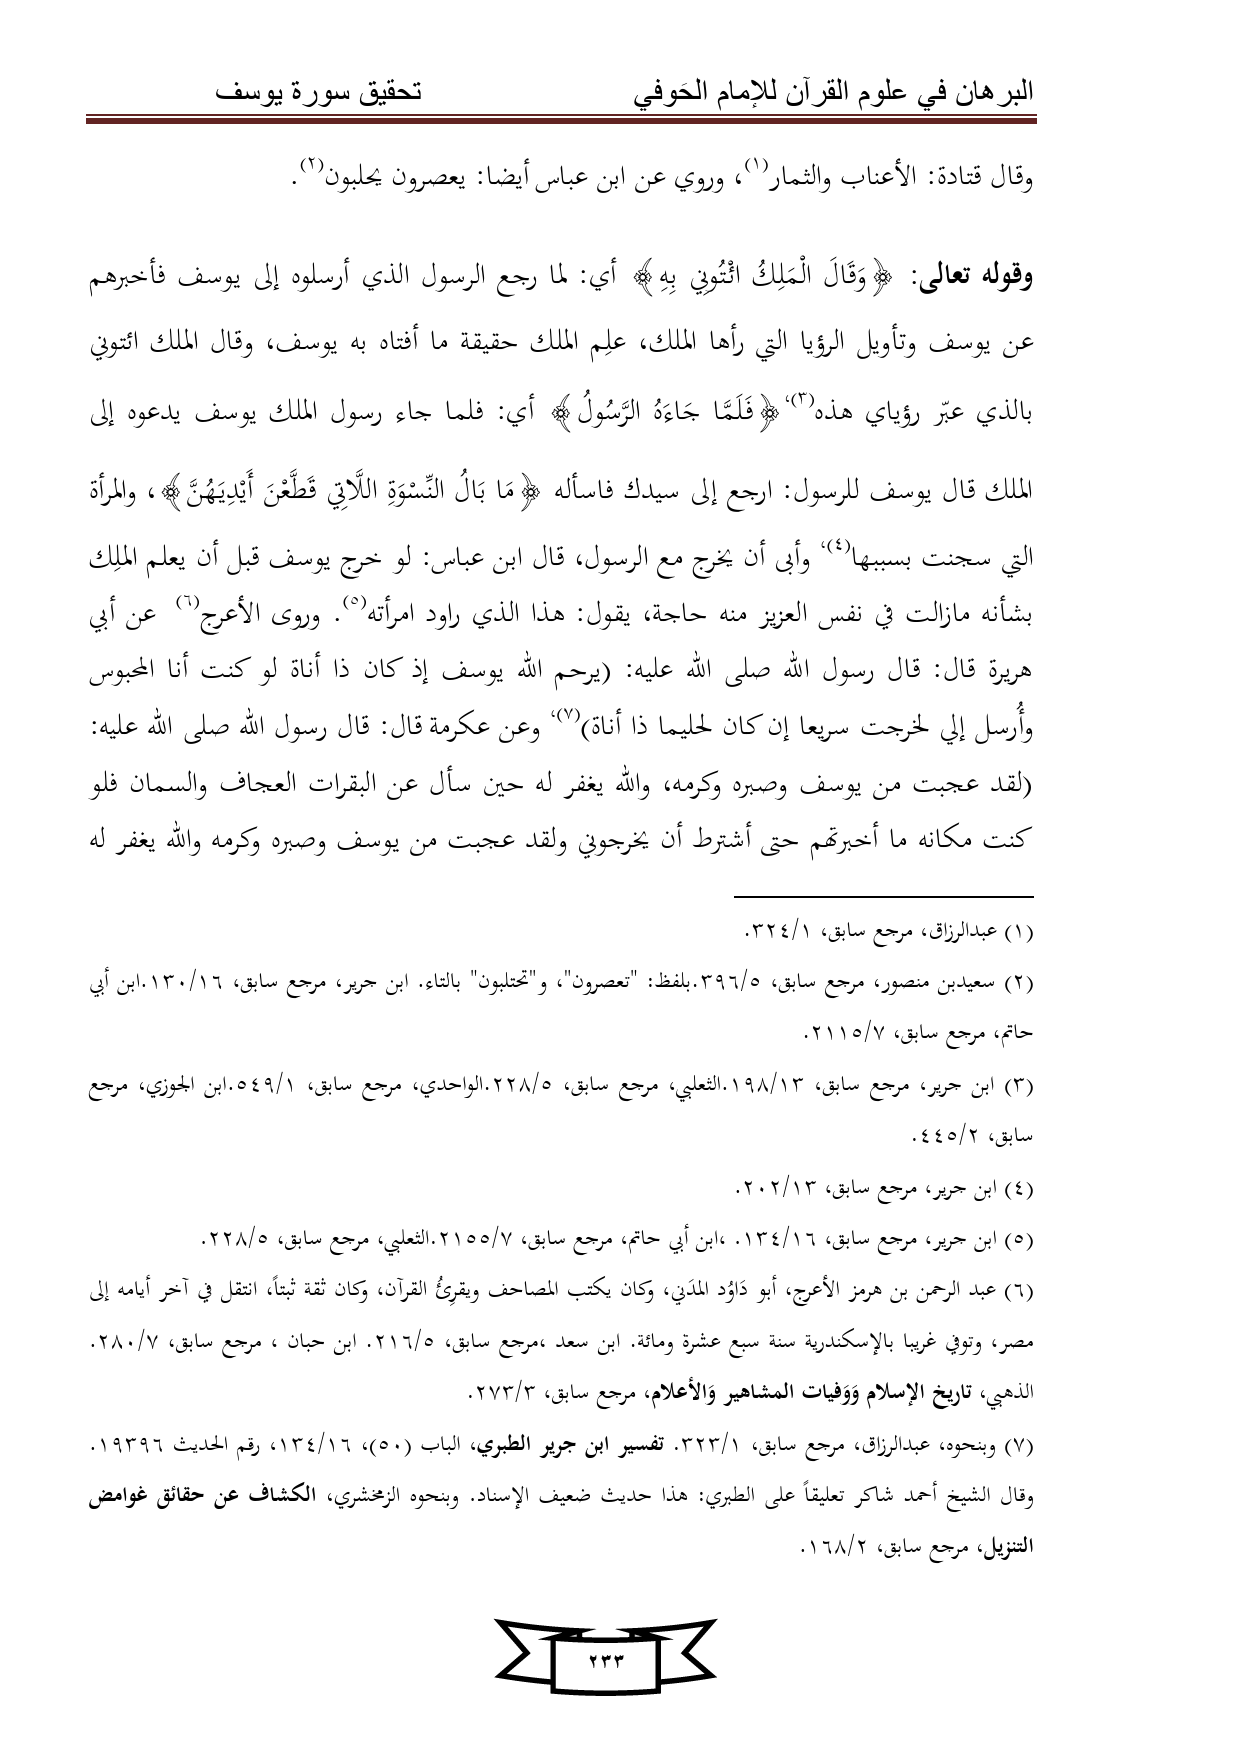 البرهان في علوم القرآن للإمام الحَوفي تحقيق سورة يوسف
وقال قتادة: الأعناب والثمار(١)، وروي عن ابن عباس أيضا: يعصرون يحلبون(٢).
وقوله تعالى: ﴿وَقَالَ الْمَلِكُ ائْتُونِي بِهِ﴾ أي: لما رجع الرسول الذي أرسلوه إلى يوسف فأخبرهم
عن يوسف وتأويل الرؤيا التي رأها الملك، علِم الملك حقيقة ما أفتاه به يوسف، وقال الملك ائتوني
بالذي عبّر رؤياي هذه(٣)، ﴿فَلَمَّا جَاءَهُ الرَّسُولُ﴾ أي: فلما جاء رسول الملك يوسف يدعوه إلى
الملك قال يوسف للرسول: ارجع إلى سيدك فاسأله ﴿مَا بَالُ النِّسْوَةِ اللَّاتِي قَطَّعْنَ أَيْدِيَهُنَّ﴾، والمرأة
التي سجنت بسببها(٤)، وأبى أن يخرج مع الرسول، قال ابن عباس: لو خرج يوسف قبل أن يعلم الملِك
بشأنه مازالت في نفس العزيز منه حاجة، يقول: هذا الذي راود امرأته(٥). وروى الأعرج(٦) عن أبي
هريرة قال: قال رسول الله صلى الله عليه: (يرحم الله يوسف إذ كان ذا أناة لو كنت أنا المحبوس
وأُرسل إلي لخرجت سريعا إن كان لحليما ذا أناة)(٧)، وعن عكرمة قال: قال رسول الله صلى الله عليه:
(لقد عجبت من يوسف وصبره وكرمه، والله يغفر له حين سأل عن البقرات العجاف والسمان فلو
كنت مكانه ما أخبرتهم حتى أشترط أن يخرجوني ولقد عجبت من يوسف وصبره وكرمه والله يغفر له
(١) عبدالرزاق، مرجع سابق، ٣٢٤/١.
(٢) سعيدبن منصور، مرجع سابق، ٣٩٦/٥.بلفظ: "تعصرون"، و"تحتلبون" بالتاء. ابن جرير، مرجع سابق، ١٣٠/١٦.ابن أبي
حاتم، مرجع سابق، ٢١١٥/٧.
(٣) ابن جرير، مرجع سابق، ١٩٨/١٣.الثعلبي، مرجع سابق، ٢٢٨/٥.الواحدي، مرجع سابق، ٥٤٩/١.ابن الجوزي، مرجع
سابق، ٤٤٥/٢.
(٤) ابن جرير، مرجع سابق، ٢٠٢/١٣.
(٥) ابن جرير، مرجع سابق، ١٣٤/١٦. ،ابن أبي حاتم، مرجع سابق، ٢١٥٥/٧.الثعلبي، مرجع سابق، ٢٢٨/٥.
(٦) عبد الرحمن بن هرمز الأعرج، أبو دَاوُد المدَني، وكان يكتب المصاحف ويقرِئُ القرآن، وكان ثقة ثبتاً، انتقل في آخر أيامه إلى
مصر، وتوفي غريبا بالإسكندرية سنة سبع عشرة ومائة. ابن سعد ،مرجع سابق، ٢١٦/٥. ابن حبان ، مرجع سابق، ٢٨٠/٧.
الذهبي، تاريخ الإسلام وَوَفيات المشاهير وَالأعلام، مرجع سابق، ٢٧٣/٣.
(٧) وبنحوه، عبدالرزاق، مرجع سابق، ٣٢٣/١. تفسير ابن جرير الطبري، الباب (٥٠)، ١٣٤/١٦، رقم الحديث ١٩٣٩٦.
وقال الشيخ أحمد شاكر تعليقاً على الطبري: هذا حديث ضعيف الإسناد. وبنحوه الزمخشري، الكشاف عن حقائق غوامض
التنزيل، مرجع سابق، ١٦٨/٢.
٢٣٣